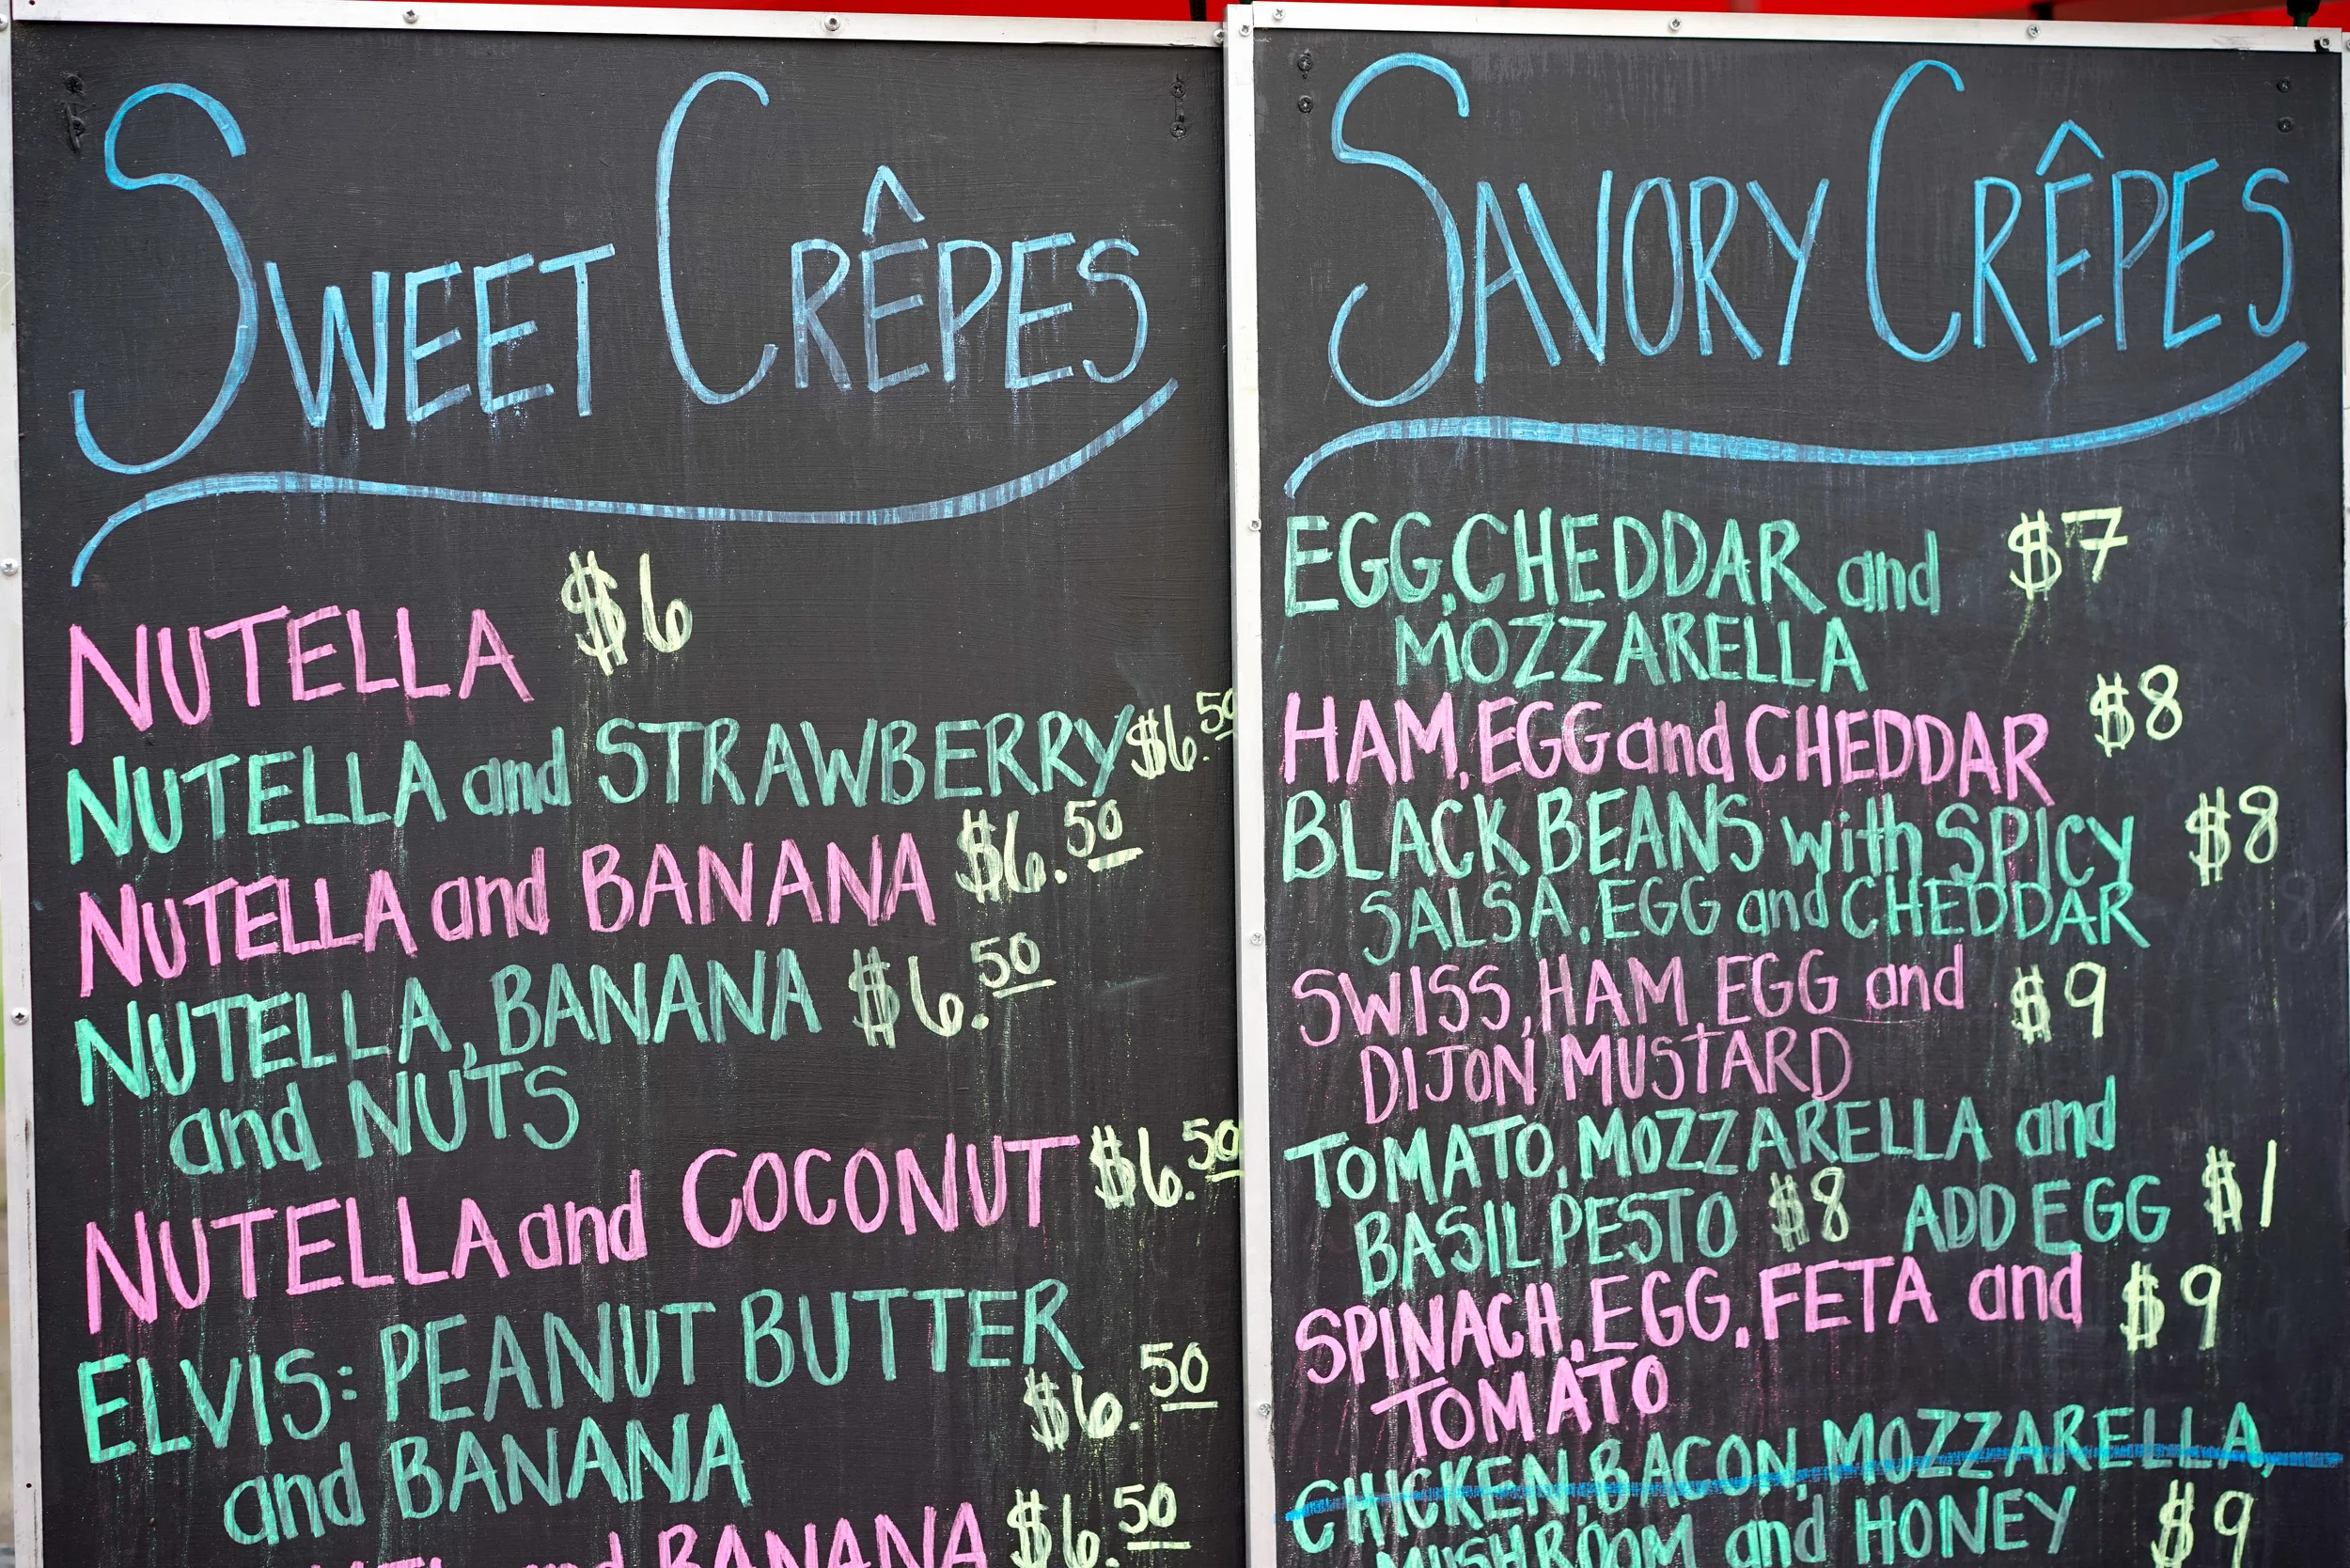 SWEET CRÊPES
NUTELLA $6
NUTELLA and STRAWBERRY $6.50
NUTELLA and BANANA $6.50
NUTELLA, BANANA $6.50
and NUTS
NUTELLA and COCONUT $6.50
ELVIS: PEANUT BUTTER
and BANANA $6.50
and BANANA $6.50
SAVORY CRÊPES
EGG, CHEDDAR and $7
MOZZARELLA
HAM, EGG and CHEDDAR $8
BLACK BEANS with SPICY $8
SALSA, EGG and CHEDDAR
SWISS, HAM EGG and $9
DIJON MUSTARD
TOMATO, MOZZARELLA and
BASIL PESTO $8 ADD EGG $1
SPINACH, EGG, FETA and $9
TOMATO
CHICKEN, BACON, MOZZARELLA,
MUSHROOM and HONEY $9